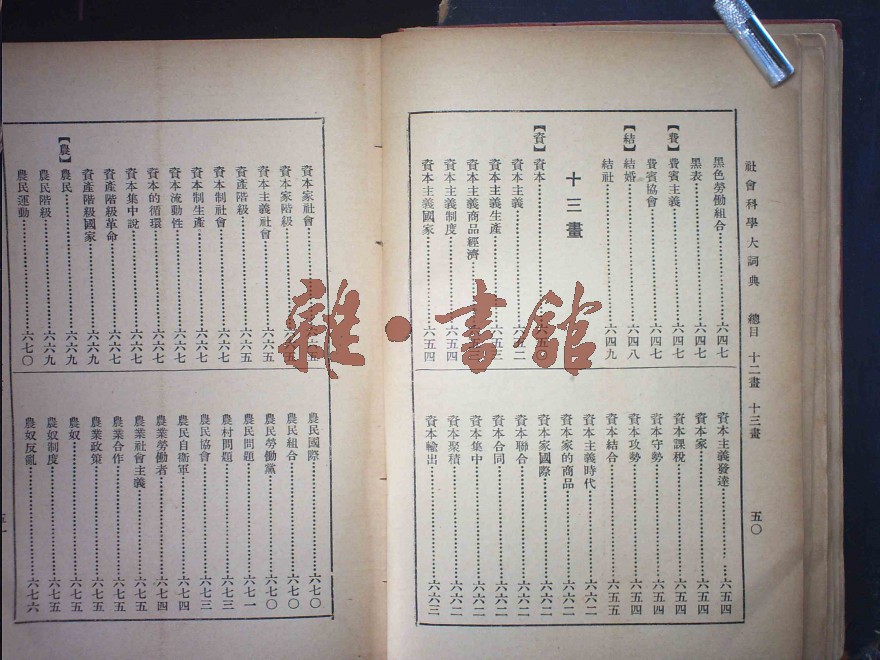 社會科學大詞典　總目　十二畫　十三畫　五〇
黑色勞働組合……六四七
黑表……六四七
【費】費賓主義……六四七
費賓協會……六四七
【結】結婚……六四八
結社……六四九
十三畫
【資】資本……
資本主義……
資本主義生產……
資本主義商品經濟……
資本主義制度……六五四
資本主義國家……六五四
資本主義發達……六五四
資本家……六五四
資本課稅……六五四
資本守勢……六五四
資本攻勢……六五五
資本結合……六五五
資本主義時代……六六二
資本家的商品……六六二
資本家國際……六六二
資本聯合……六六二
資本合同……六六二
資本集中……六六二
資本聚積……六六二
資本輸出……六六三
資本家社會……
資本家階級……
資本主義社會……六六五
資產階級……六六五
資本制社會……六六七
資本制生產……六六七
資本流動性……六六七
資本的循環……六六七
資本集中說……六六七
資產階級革命……六六七
資產階級國家……六六九
【農】農民……六六九
農民階級……六六九
農民運動……六七〇
農民國際……六七〇
農民組合……六七〇
農民勞働黨……六七〇
農民問題……六七一
農村問題……六七三
農民協會……六七三
農民自衛軍……六七四
農業勞働者……六七四
農業社會主義……六七五
農業合作……六七五
農業政策……六七五
農奴……六七五
農奴制度……六七五
農奴反亂……六七六
雜·書館